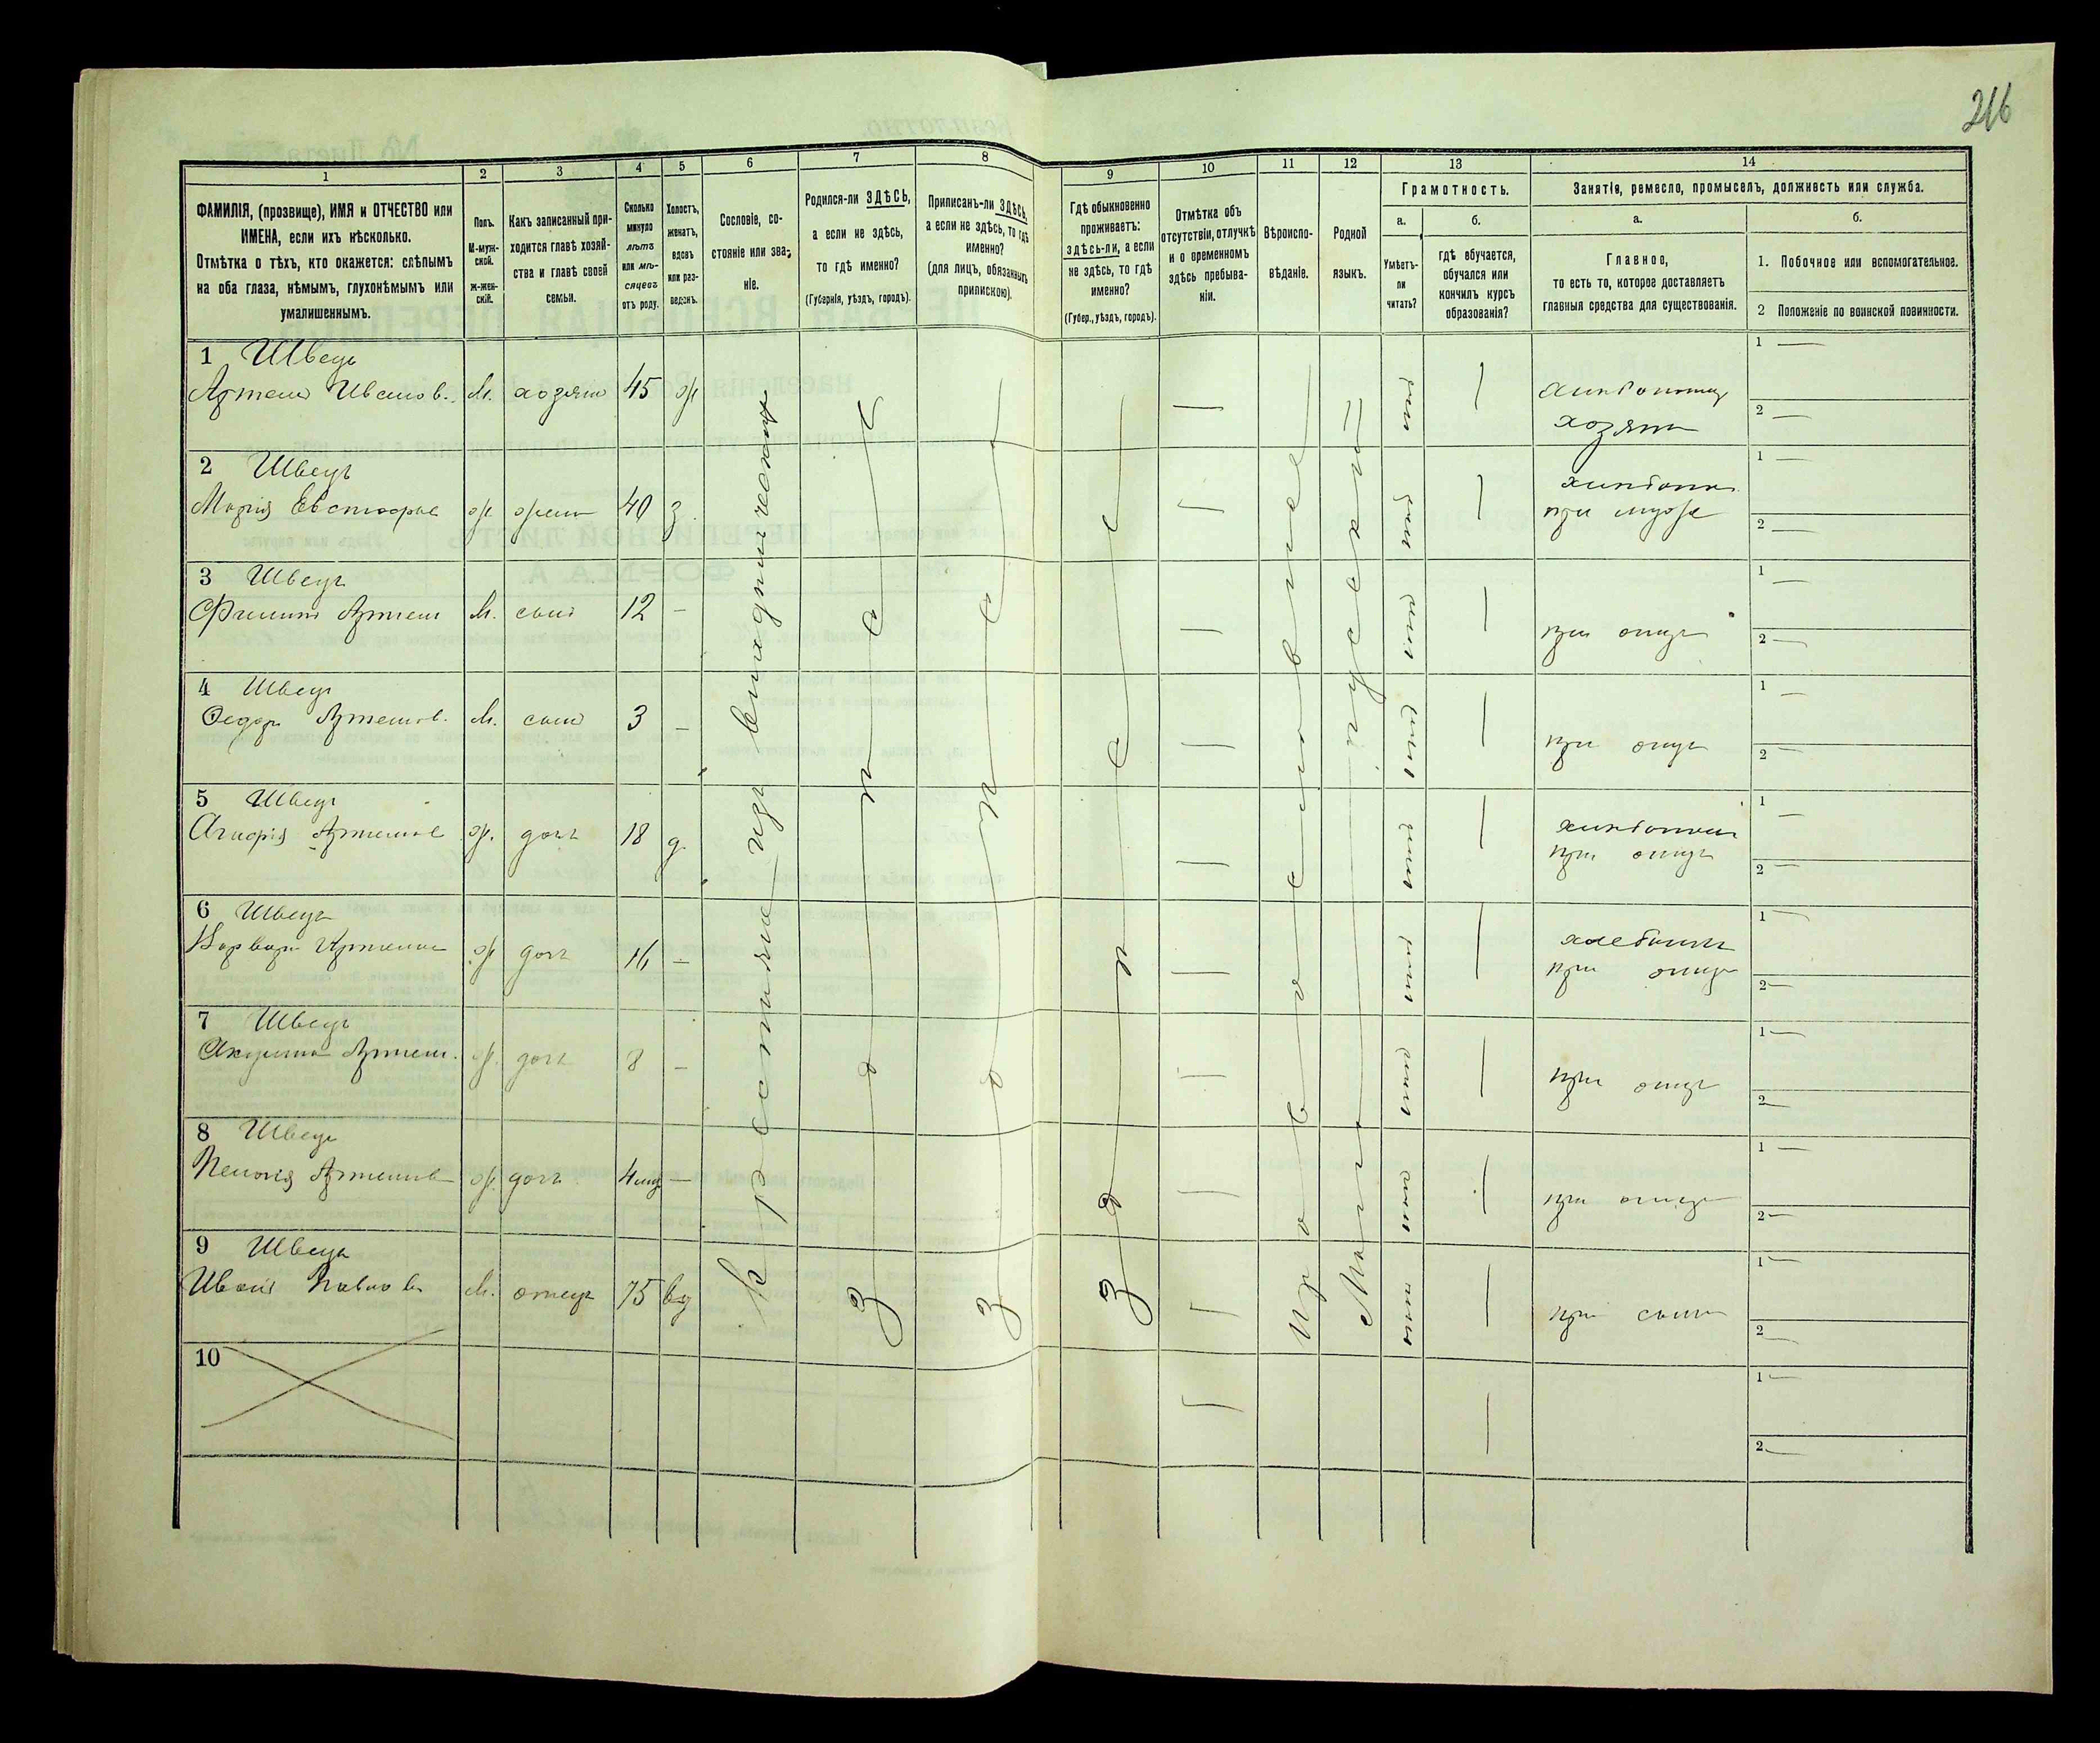 216
1
2
3
4
5
6
7
8
9
10
11
12
13
14
ФАМИЛІЯ, (прозвище), ИМЯ и ОТЧЕСТВО или
ИМЕНА, если ихъ нѣсколько.
Отмѣтка о тѣхъ, кто окажется: слѣпымъ
на оба глаза, нѣмымъ, глухонѣмымъ или
умалишеннымъ.
Полъ.
М-муж-
ской.
ж-жен-
скій.
Какъ записанный при-
ходится главѣ хозяй-
ства и главѣ своей
семьи.
Сколько
минуло
лѣтъ
или мѣ-
сяцевъ
отъ роду.
Холостъ,
женатъ,
вдовъ
или раз-
веденъ.
Сословіе, со-
стояніе или зва-
ніе.
Родился-ли ЗДѢСЬ,
а если не здѣсь,
то гдѣ именно?
(Губернія, уѣздъ, городъ).
Приписанъ-ли ЗДѢСЬ,
а если не здѣсь, то гдѣ
именно?
(для лицъ, обязанныхъ
припискою).
Гдѣ обыкновенно
проживаетъ:
здѣсь-ли, а если
не здѣсь, то гдѣ
именно?
(Губер., уѣздъ, городъ).
Отмѣтка объ
отсутствіи, отлучкѣ
и о временномъ
здѣсь пребыва-
ніи.
Вѣроиспо-
вѣданіе.
Родной
языкъ.
Грамотность.
а.
б.
Умѣетъ-
ли
читать?
гдѣ обучается,
обучался или
кончилъ курсъ
образованія?
Занятія, ремесло, промыселъ, должность или служба.
а.
б.
Главное,
то есть то, которое доставляетъ
главныя средства для существованія.
1. Побочное или вспомогательное.
2 Положеніе по воинской повинности.
1 Швець
Артем Иванов. М. хозяин 45 ж
хозяин
1
2
2 Швець
Марія ж жена 40 з.
при муже
1
2
3 Швець
Филипп Артем М. сын 12 -
при отце
1
2
4 Швець
Федор Артемов. М. сын 3 -
при отце
1
2
5 Швець
Артемов ж. дочь 18 д
при отце
1
2
6 Швець
Варвара Артемов ж дочь 16 -
при отце
1
2
7 Швець
Акулина Артем. ж. дочь 8 -
при отце
1
2
8 Швець
Артемов ж. дочь 4 -
при отце
1
2
9 Швець
Иван Павлов М. отець 75 вд
при сыне
1
2
10
1
2
Крестьяне из
здесь
здесь
здесь
Православное
Мало-русский